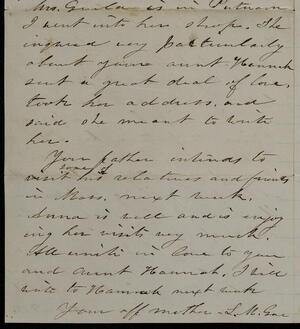 Mrs. is in Putnam
I went into her shop. She
inquired very particularly
about you and aunt Hannah
sent a great deal of love,
took her address, and
said she meant to write
her.
Your father intends to
some of
visit his relatives and friends
in Mass. next week.
Anna is well and is enjoy
ing her visits very much.
All unite in love to you
and aunt Hannah, I will
write to Hannah next week
Your aff mother